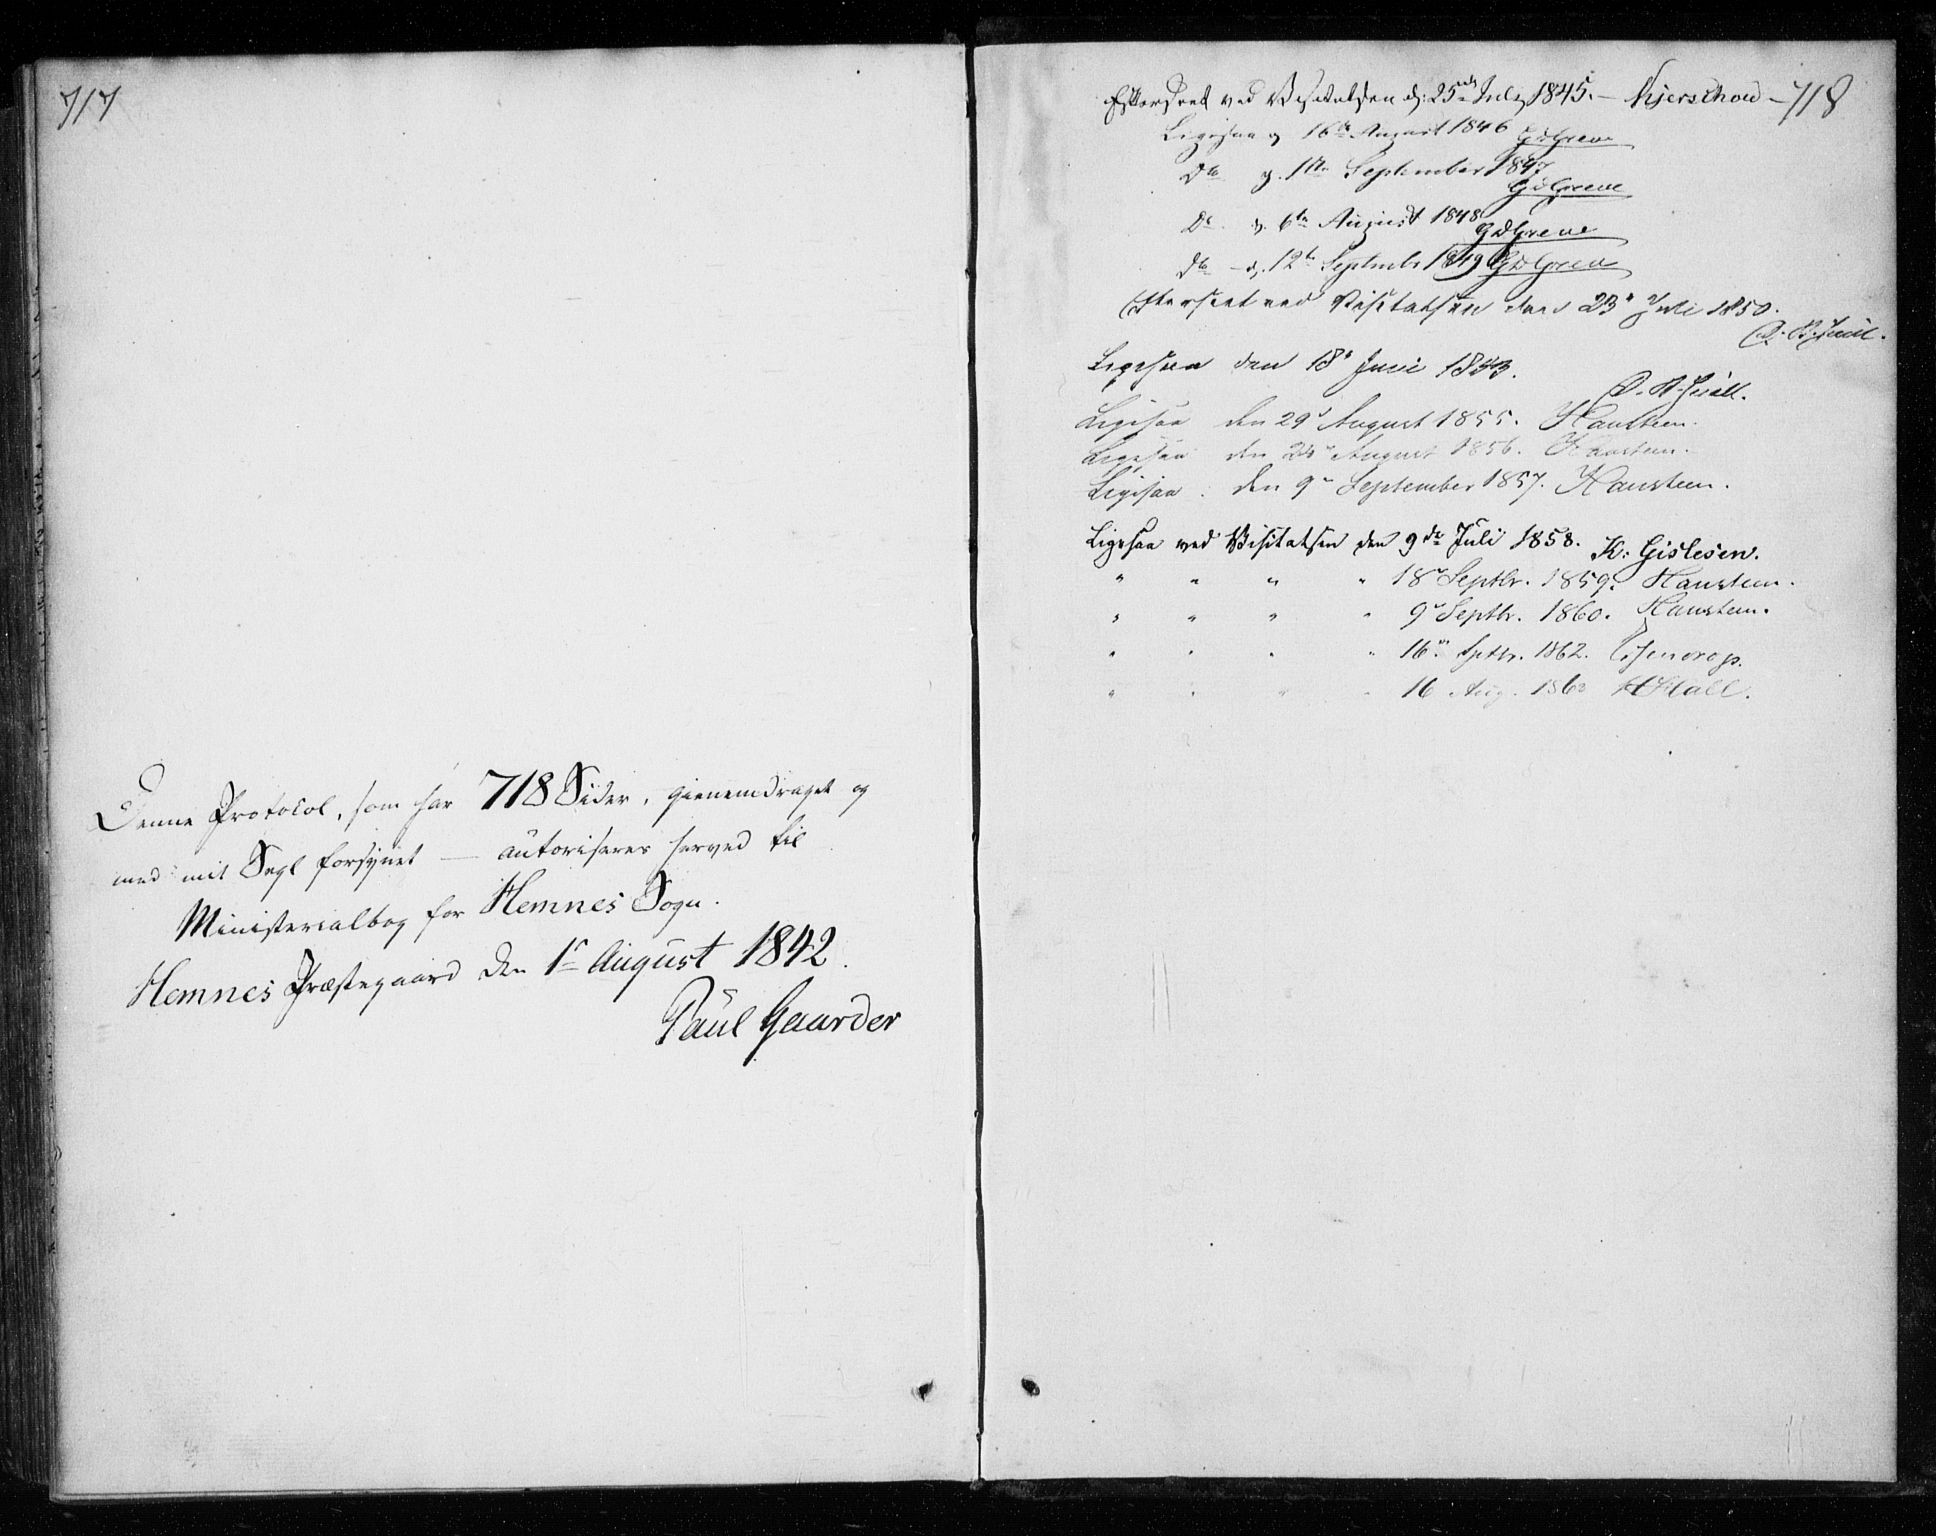 717
Denne Protocol, som har 718 Sider, gienemdraget og
med mit Segl forsynet — autoriseres herved til
Ministerialbog for Hemnes Sogn.
Hemnes Præstegaard den 1r August 1842.
Paul Gaarder
718
Efterseet ved Visitatsen d: 25de July 1845. — Kjerschow —
Ligesaa d. 16de August 1846 GDGreve
Do d. 1ste September 1847 GDGreve
Do d. 6te August 1848 GDGreve
Do – d. 12te Septembr 1849 GDGreve
Efterseet ved Visitatsen den 23e Juli 1850.
Ligesaa den 18e Juni 1853.
Ligesaa den 29d August 1855. Hansteen.
Ligesaa den August 1856. Hansteen.
Ligesaa. den 9de September 1857. Hansteen.
Ligesaa ved Visitatsen den 9de Juli 1858. K: Gislesen.
" " " " 18de Septbr. 1859. Hansteen.
" " " " 9de Septbr. 1860. Hansteen.
" " " " 16de Sptbr. 1862.
" " " " 16 Aug. 1863 Hall.